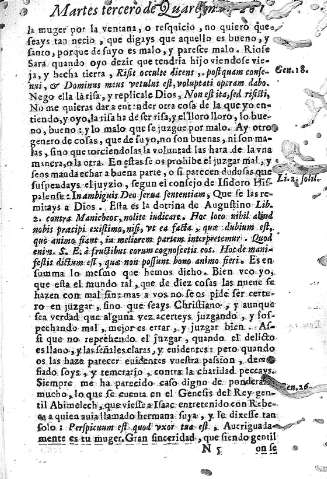 Martes tercero de Quaresm.
la muger por la ventana, o resquicio, no quiero que
seays tan necio, que digays que aquello es bueno, y
santo, porque de suyo es malo, y paresce malo. Riose
Sara quando oyo dezir que tendria hijo viendose vie-
ja, y hecha tierra, Risit occulte dicens, postquam conse-
nui, & Dominus meus vetulus est, voluptati operam dabo.
Gen. 18.
Nego ella la risa, y replicale Dios, Non est ita, sed risisti,
No me quieras dar a entender otra cosa de la que yo en-
tiendo, y oyo, la risa ha de ser risa, y el lloro lloro, lo bue-
no, bueno: y lo malo que se juzgue por malo. Ay otro
genero de cosas, que de suyo, no son buenas, ni son ma-
las, sino que torciendolas la voluntad las hara de la vna
manera, o la otra. En estas se os prohibe el juzgar mal, y
se os manda echar a buena parte, o si parecen dudosas que
suspendays el juyzio, segun el consejo de Isidoro His-
palense: In ambiguis Dei serua sententiam, Que se las re-
mitays a Dios. Esta es la dotrina de Augustino Lib.
2. contra Manicheor, nolite iudicare. Hoc loco nihil aliud
nobis præcipi existimo, nisi, vt ea facta, quæ dubium est,
quo animo fiant, in meliorem partem interpretemur. Quod
enim. S. E. à fructibus eorum cognoscetis eos. Hoc de mani-
festis dictum est, quæ non possunt bono animo fieri. Es en
summa lo mesmo que hemos dicho. Bien veo yo,
que esta el mundo tal, que de diez cosas las nueue se
hazen con mal fin: mas a vos no se os pide ser certe-
ro en juzgar, sino que seays Christiano, y aunque
sea verdad que alguna vez acerteys juzgando, y sos-
pechando mal, mejor es errar, y juzgar bien. As-
si que no reprehendo el juzgar, quando el delicto
es llano, y las señales claras, y euidentes: pero quando
os las haze parecer euidentes vuestra passion,
fiado soys, y temerario, contra la charidad peccays.
Siempre me ha parecido caso digno de ponderar
mucho, lo que se cuenta en el Genesis del Rey gen-
Gen. 26.
til Abimelech, que viesse a Isaac entretenido con Rebe-
ca a quien auia llamado hermana suya, y le dixesse tan
solo: Perspicuum est quod vxor tua est. Aueriguada-
mente es tu muger. Gran sinceridad, que siendo gentil
N 5 on se